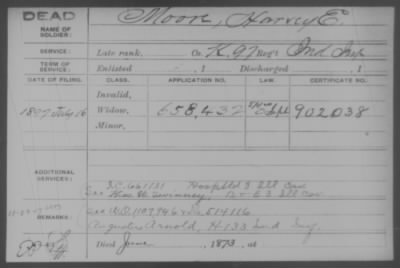 DEAD
NAME OF SOLDIER: Moore, Harvey E.
SERVICE: Late rank, Co. K. 97 Reg't Ind Inf
TERM OF SERVICE: Enlisted , 1 Discharged , 1
DATE OF FILING. CLASS. APPLICATION NO. LAW. CERTIFICATE NO.
Invalid,
1897 July 16 Widow, 658,432 902038
Minor,
ADDITIONAL SERVICES:
S.C. 661131 Hospl 3 Ill Cav
See Thos. H. 3 Ill Cav
REMARKS: See W.O. 1107946 514116
Augustus Arnold, H-133 Ind Inf
Died June , 1873, at